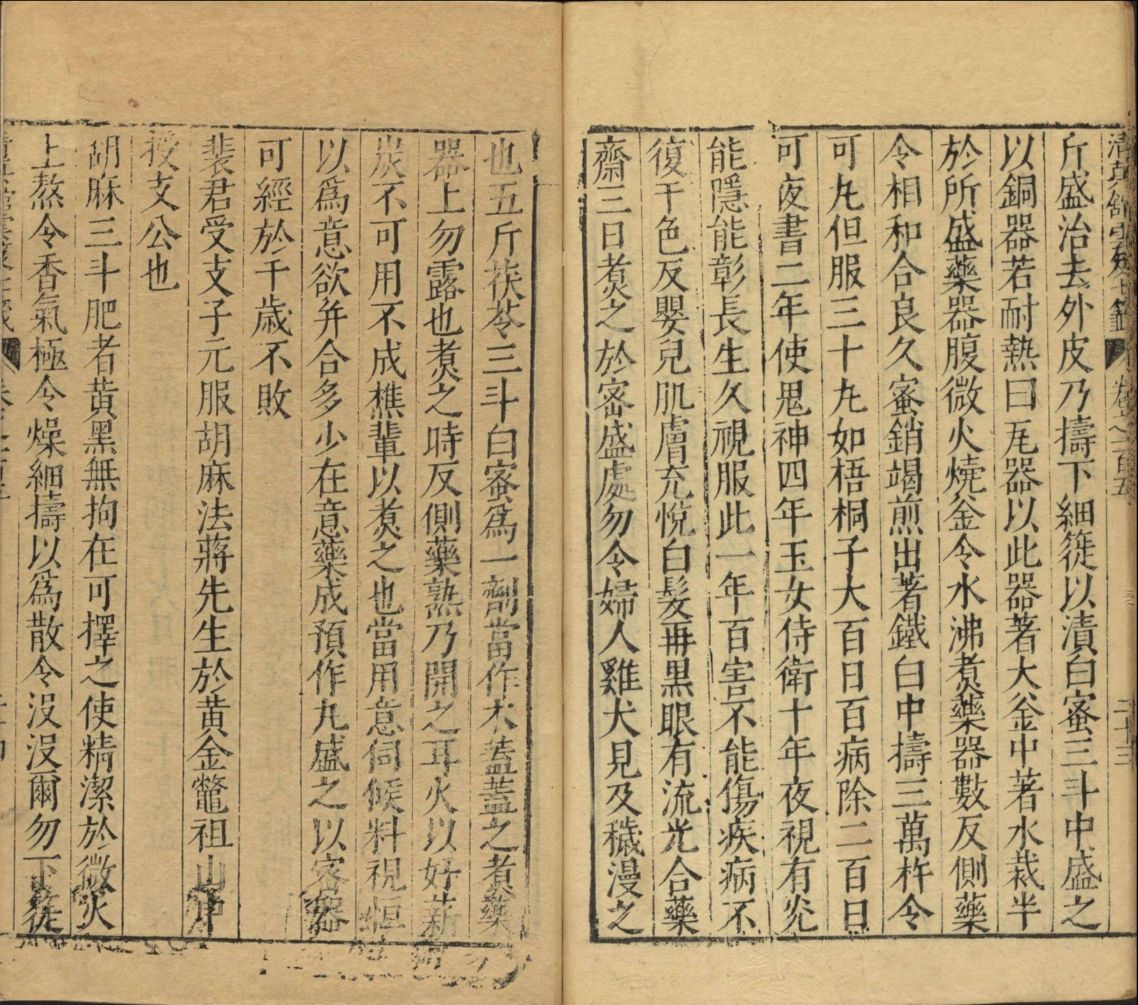 斤盛治去外皮乃擣下細簁以漬白蜜三斗中盛之
以銅器若耐熱曰瓦器以此器著大釜中著水裁半
於所盛藥器腹微火燒釜令水沸煑藥器數反側藥
令相和合良久蜜銷竭煎出著鐵臼中擣三萬杵令
可丸但服三十丸如梧桐子大百日百病除二百日
可夜書二年使鬼神四年玉女侍衛十年夜視有光
能隱能彰長生久視服此一年百害不能傷疾病不
復干色反嬰兒肌膚充悅白髮再黒眼有流光合藥
齋三日煑之於密盛處勿令婦人雞犬見及穢漫之
也五斤茯苓三斗白蜜爲一劑當作木蓋蓋之煑藥
器上勿露也煑之時反側藥熟乃開之耳火以好薪
炭不可用不成樵輩以煑之也當用意伺候料視恒
以爲意欲并合多少在意藥成預作丸盛之以密器
可經於千歲不敗
裴君受支子元服胡麻法蔣先生於黄金鼈祖山中
授支公也
胡麻三斗肥者黄黑無拘在可擇之使精潔於微火
上熬令香氣極令燥細擣以爲散令没没爾勿下簁